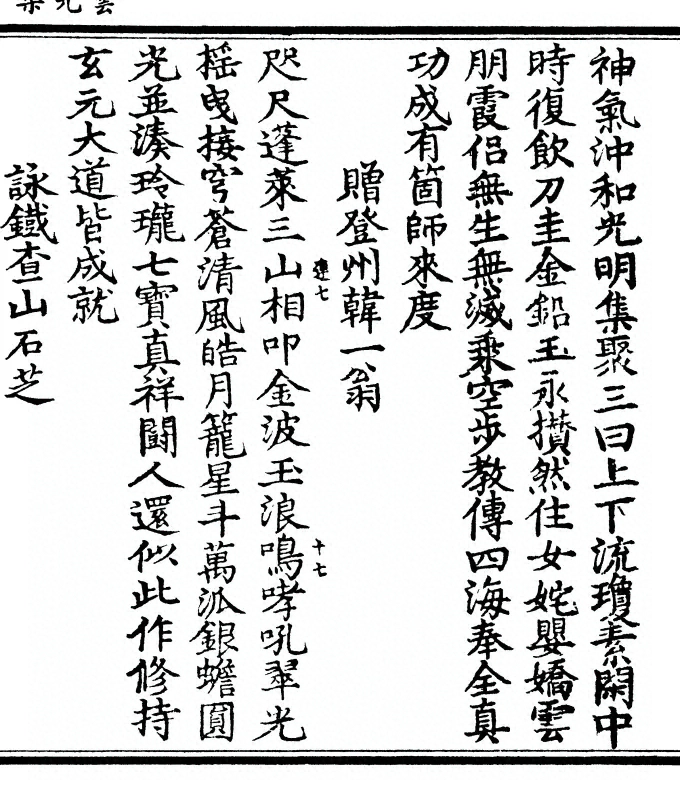 神氣沖和光明集聚三曰上下流瓊素閑中
時復飲刀圭金鉛玉汞攢然住女姹嬰嬌雲
朋霞侶無生無滅乘空步教傳四海奉全真
功成有箇師來度
贈登州韓一翁
咫尺蓬萊三山相叩金波玉浪鳴哮吼翠光
搖曳接穹蒼清風皓月籠星斗萬派銀蟾圓
光並湊玲瓏七寶真祥鬪人還似此作修持
玄元大道皆成就
詠鐵查山石芝
雲光集
連七
十七